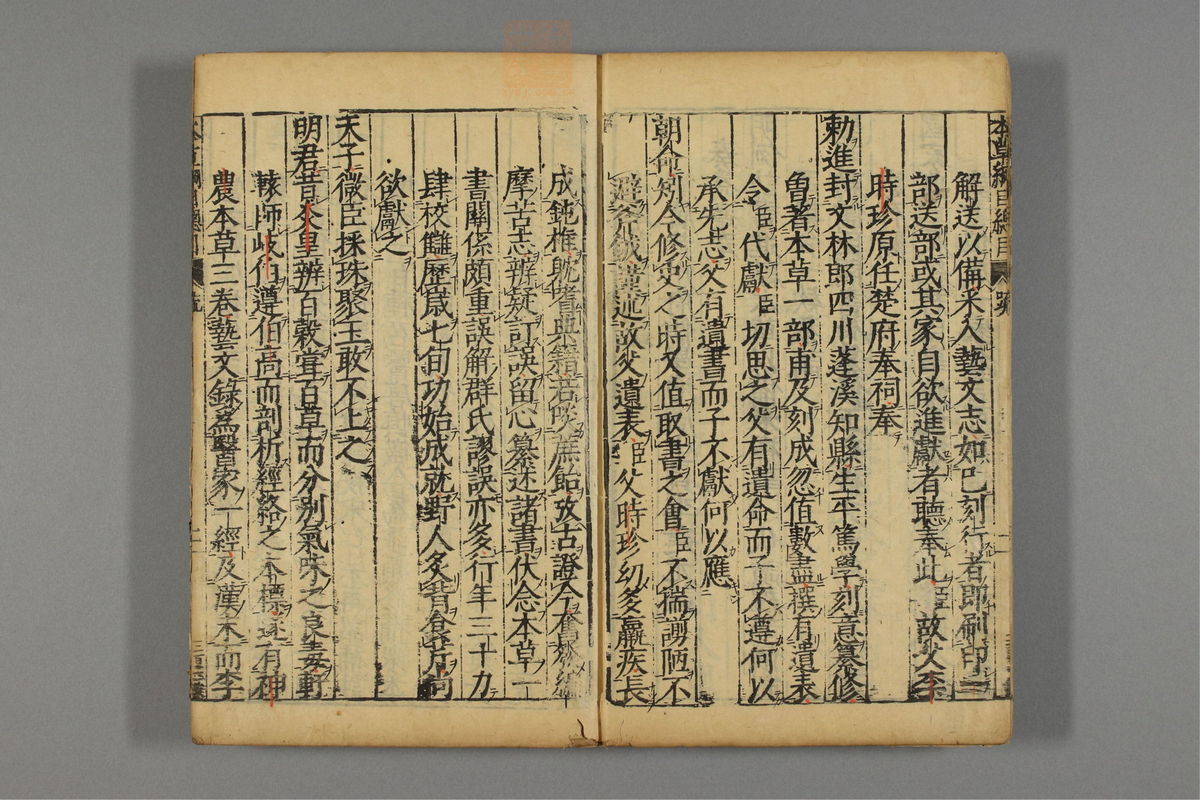 本草綱目總目
解送以備采入藝文志如已刻行者即刷印一
部送部或其家自欲進獻者聽奉此臣故父李
時珍原任楚府奉祠奉
勅進封文林郎四川蓬溪知縣生平篤學刻意纂修
曾著本草一部甫及刻成忽值數盡撰有遺表
令臣代獻臣切思之父有遺命而子不遵何以
承先志父有遺書而子不獻何以應
朝命矧今修史之時又值取書之會臣不揣謭陋不
避斧鉞謹述故父遺表臣父時珍幼多羸疾長
成鈍椎耽嗜典籍若啖蔗飴攷古證今奮發編
摩苦志辨疑訂誤留心纂述諸書伏念本草一
書關係頗重誤解群氏謬誤亦多行年三十力
肆校讎歷歲七旬功始成就野人炙背食芹尚
欲獻之
天子微臣採珠聚玉敢不上之
明君昔炎皇辨百穀嘗百草而分別氣味之良毒軒
轅師岐伯遵伯高而剖析經絡之本標遂有神
農本草三卷藝文錄爲醫家一經及漢末而李